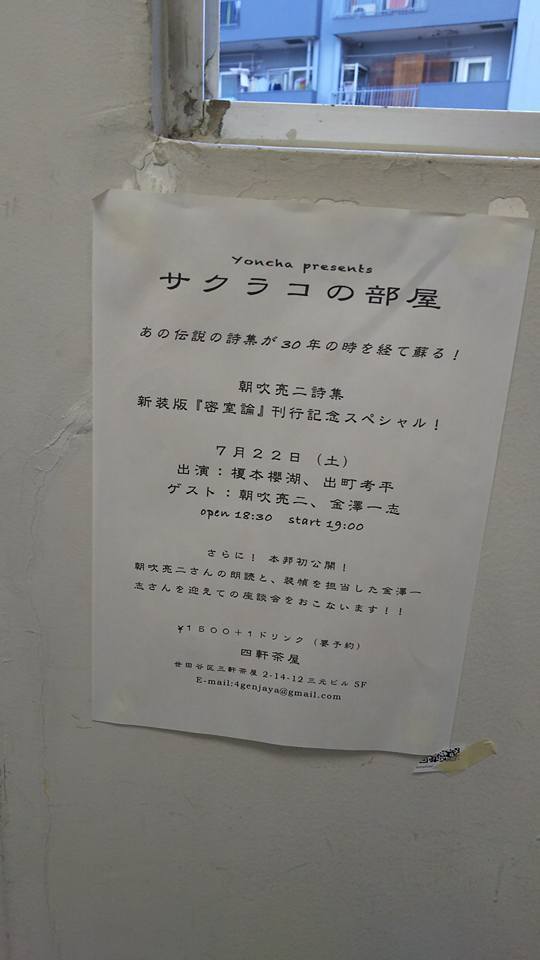 Yoncha presents
サクラコの部屋
あの伝説の詩集が30年の時を経て蘇る！
朝吹亮二詩集
新装版『密室論』刊行記念スペシャル！
７月２２日（土）
出演：榎本櫻湖、出町考平
ゲスト：朝吹亮二、金澤一志
open 18:30 start 19:00
さらに！ 本邦初公開！
朝吹亮二さんの朗読と、装幀を担当した金澤一
志さんを迎えての座談会をおこないます！！
￥１５００＋１ドリンク（要予約）
四軒茶屋
世田谷区三軒茶屋 2-14-12 三元ビル 5F
E-mail:4genjaya@gmail.com